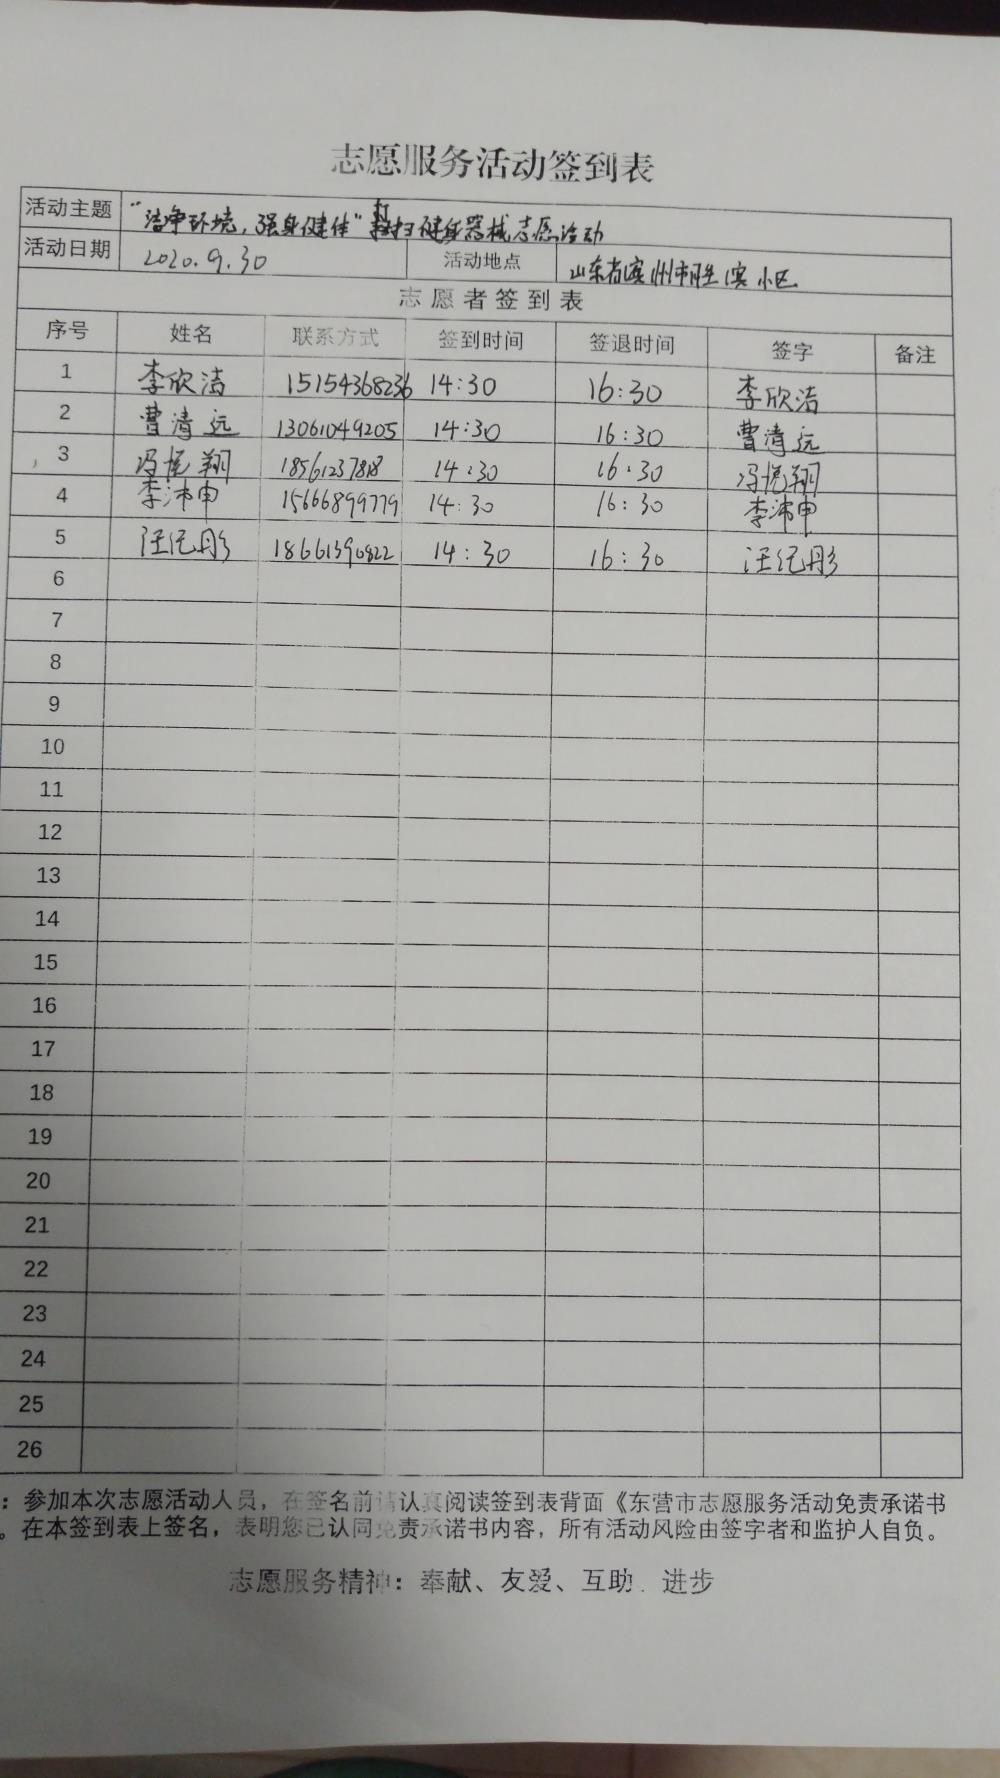 志愿服务活动签到表
活动主题 “洁净环境，强身健体”打扫健身器械志愿活动
活动日期 2020.9.30 活动地点 山东省滨州市胜滨小区
志愿者签到表
序号 姓名 联系方式 签到时间 签退时间 签字 备注
1 李欣洁 15154368236 14:30 16:30 李欣洁
2 曹清远 13061049205 14:30 16:30 曹清远
3 冯 翔 18561237818 14:30 16:30 冯 翔
4 李沛申 15666899779 14:30 16:30 李沛申
5 汪纪彤 18661390822 14:30 16:30 汪纪彤
6
7
8
9
10
11
12
13
14
15
16
17
18
19
20
21
22
23
24
25
26
：参加本次志愿活动人员，在签名前请认真阅读签到表背面《东营市志愿服务活动免责承诺书
。在本签到表上签名，表明您已认同免责承诺书内容，所有活动风险由签字者和监护人自负。
志愿服务精神：奉献、友爱、互助、进步